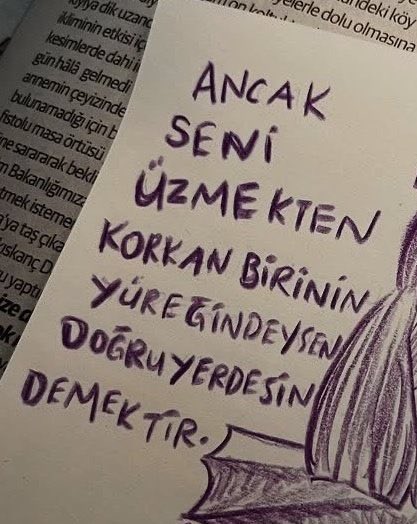 ANCAK
SENİ
ÜZMEKTEN
KORKAN BİRİNİN
YÜREĞİNDEYSEN
DOĞRU YERDESİN
DEMEKTİR.
yayıya dik uzan
ikliminin etkisi iç
kesimlerde dahi
gün hâlâ gelmed
annemin çeyizinde
bulunamadığı için b
masa örtüsü
ne sararak bekl
Bakanlığımız
tmek isteme
ya taş çıka
uskanç D
u yaptı
yelerle dolu olmasına